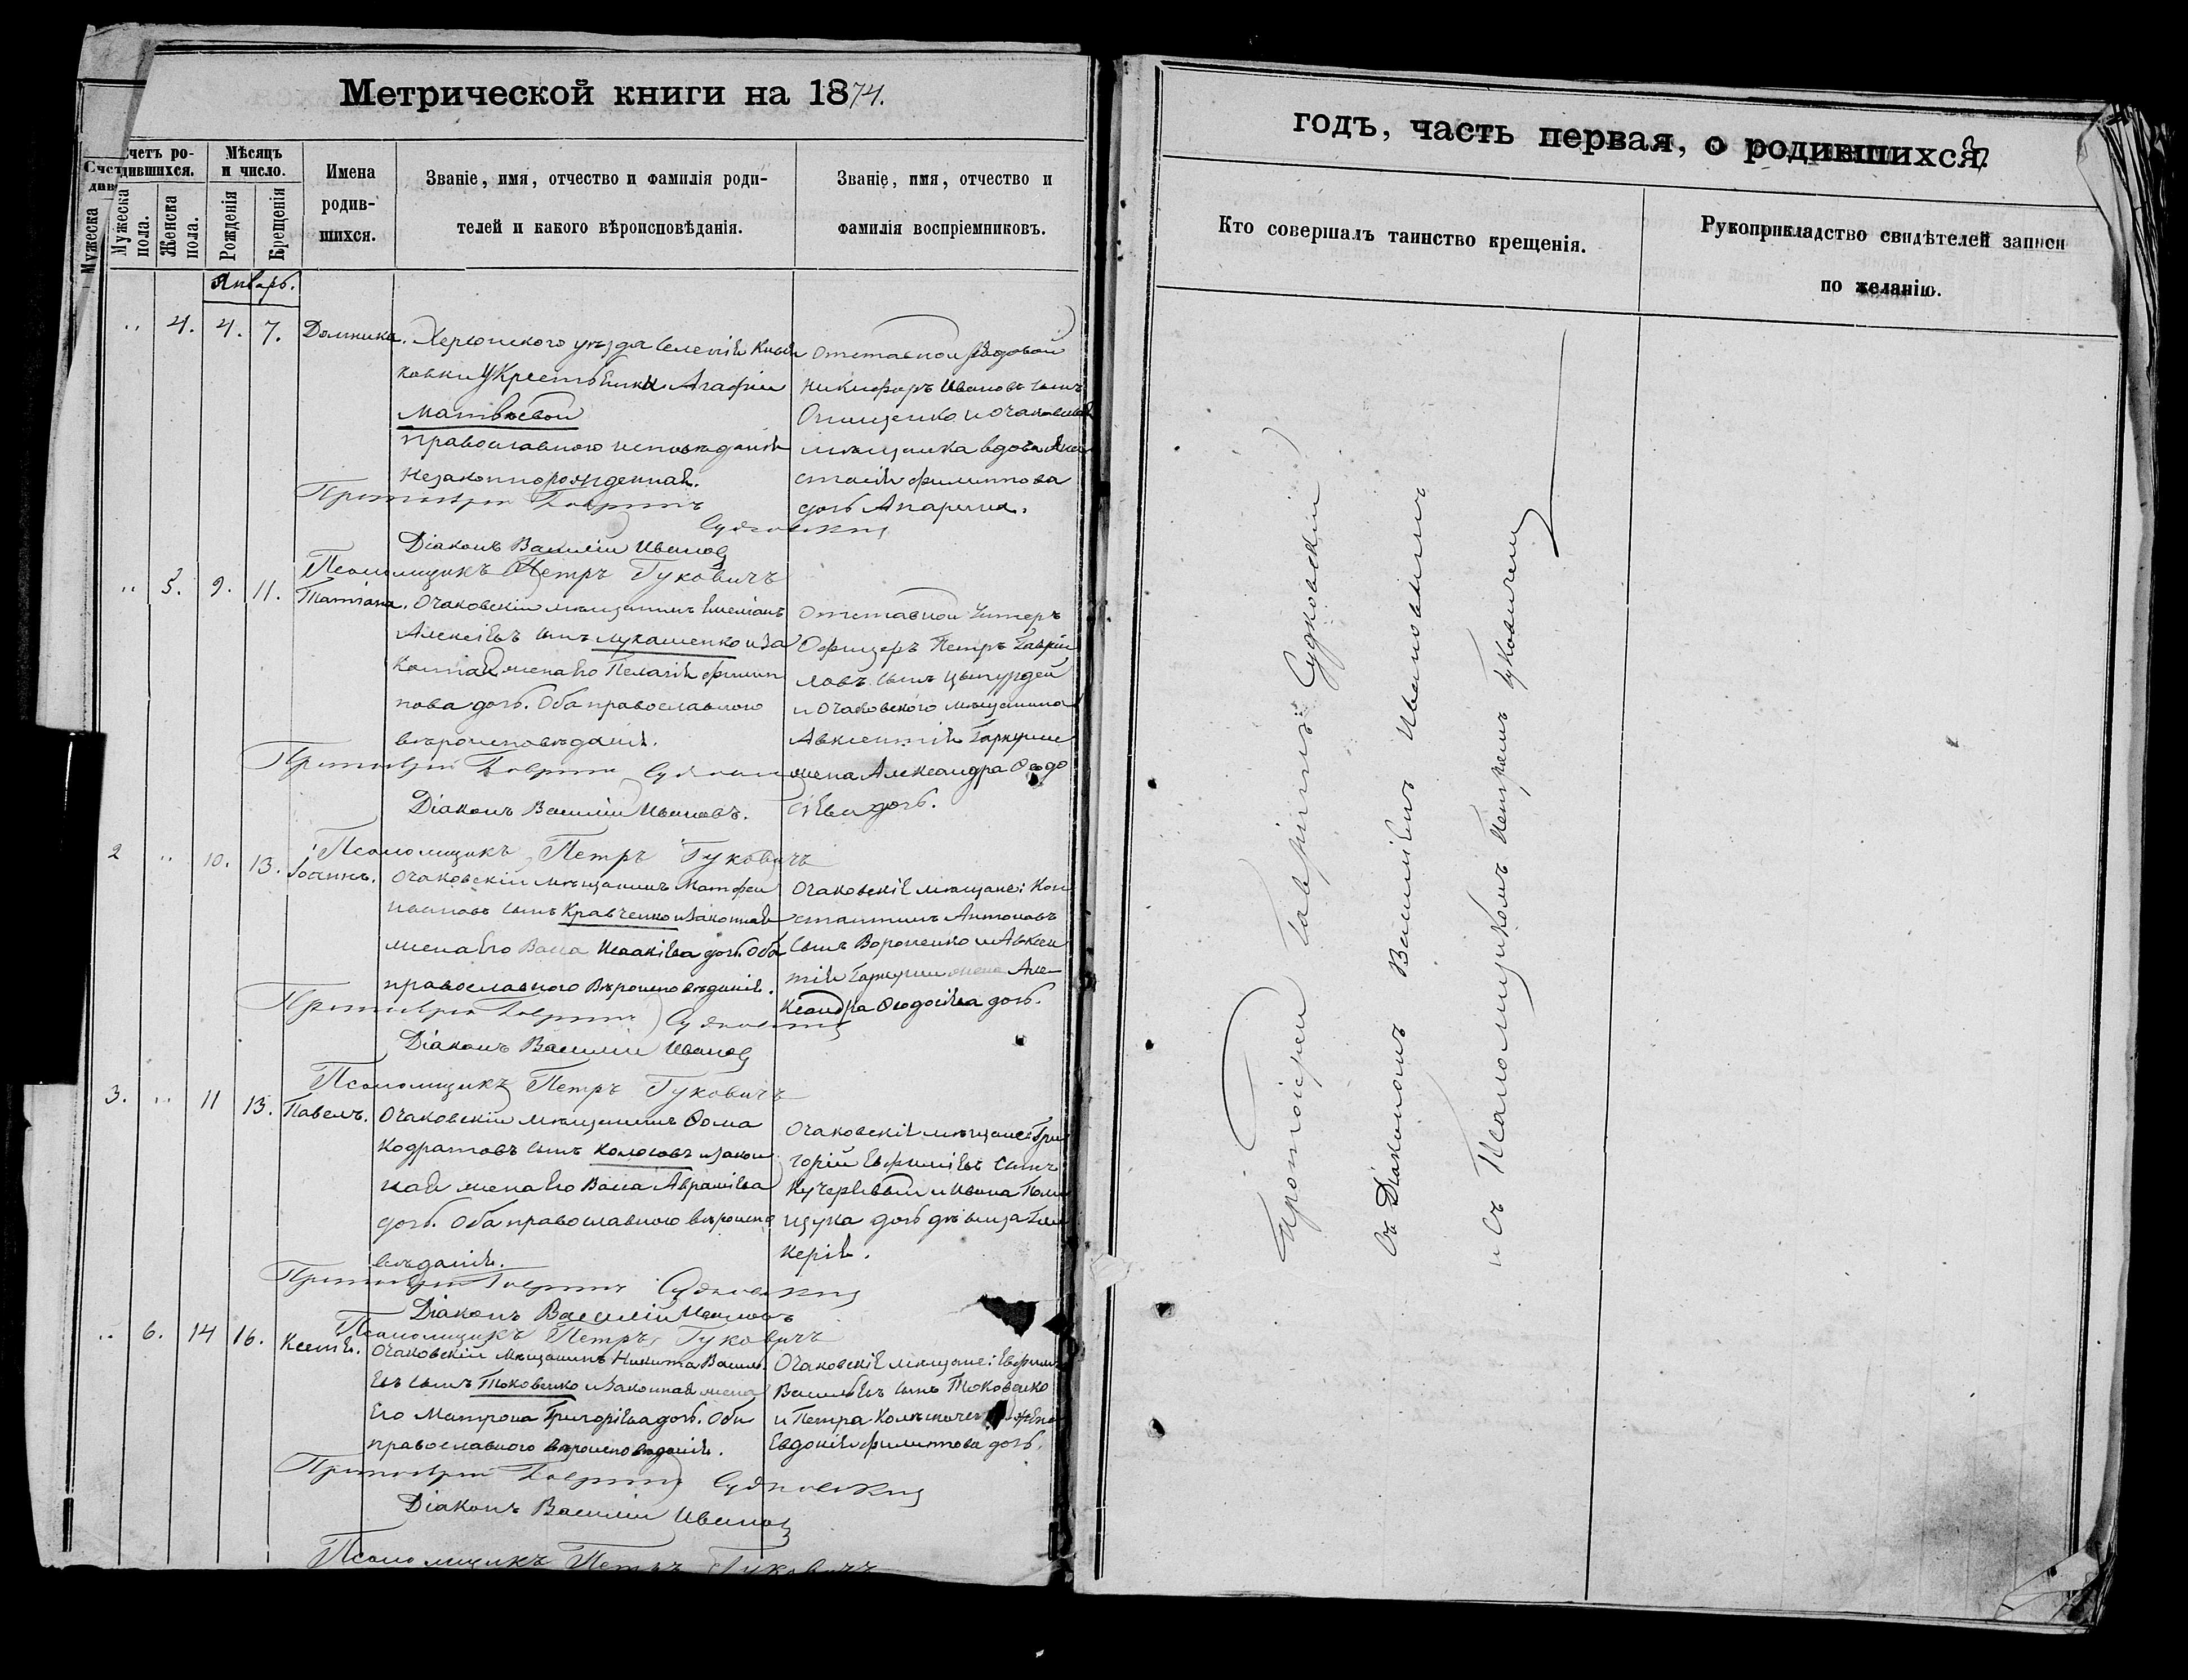 Метрической книги на 1874.
Счетъ родившихся.
Мѣсяцъ и число.
Мужеска пола.
Женска пола.
Рожденія
Крещенія
Имена родившихся.
Званіе, имя, отчество и фамилія родителей и какого вѣроисповѣданія.
Званіе, имя, отчество и фамилія воспріемниковъ.
Январь.
" 4. 4. 7. Домника.
Херсонскаго уѣзда селенія
Крестьянки Агафіи
Матвѣевой
православнаго исповѣданія
Незаконнорожденная.
Отставной Рядовой
Никифоръ Ивановъ сынъ
Онищенко и Очаковская
мѣщанка вдова Ана
стасія Филиппова
дочь Апарина.
Протоіерей Гавріилъ Судковскій
Діаконъ Василій Ивановъ
Псаломщикъ Петръ Гуковичъ
" 5. 9. 11. Татіана.
Очаковскій мѣщанинъ Емеліанъ
Алексіевъ сынъ Лукашенко и за
конная жена его Пелагія Филип
пова дочь. Оба православнаго
вѣроисповѣданія.
Отставной Унтеръ
Офицеръ Петръ Гаврiи
ловъ сынъ
и Очаковскаго мѣщанина
Авксентія Гаркуши
жена Александра Ѳеодо
сіева дочь.
Протоіерей Гавріилъ Судковскій
Діаконъ Василій Ивановъ.
Псаломщикъ Петръ Гуковичъ
2 " 10. 13. Іоаннъ.
Очаковскій мѣщанинъ Матфей
Ивановъ сынъ Кравченко и законная
жена его Васса Исаакіева дочь. Оба
православнаго Вѣроисповѣданія.
Очаковскіе мѣщане: Кон
стантинъ Антоновъ
сынъ Вороненко и Авксен
тія Гаркуши жена Але
ксандра Ѳеодосіева дочь.
Протоіерей Гавріилъ Судковскій
Діаконъ Василій Ивановъ
Псаломщикъ Петръ Гуковичъ
3. " 11 13. Павелъ.
Очаковскій мѣщанинъ Ѳома
Кодратовъ сынъ Колосовъ и закон
ная жена его Васса Авраміева
дочь. Оба православнаго вѣроиспо
вѣданія.
Очаковскіе мѣщане: Гри
горій Евфиміевъ сынъ
Кучерявый и Ивана
дочь дѣвица Гли
керія.
Протоіерей Гавріилъ Судковскій
Діаконъ Василій Ивановъ
Псаломщикъ Петръ Гуковичъ
" 6. 14 16. Ксенія.
Очаковскій мѣщанинъ Никита Василь
евъ сынъ Токовенко и законная жена
его Матрона Григоріева дочь. Оба
православнаго вѣроисповѣданія.
Очаковскіе мѣщане: Евфимъ
Васильевъ сынъ Токовенко
и Петра жена
Евдокія Филиппова дочь.
Протоіерей Гавріилъ Судковскій
Діаконъ Василій Ивановъ
Псаломщикъ Петръ Гуковичъ
годъ, часть первая, о родившихся.
Кто совершалъ таинство крещенія.
Рукоприкладство свидѣтелей записи по желанію.
Протоіерей Гавріилъ Судковскій
съ Діакономъ Василіемъ Ивановымъ
и съ Псаломщикомъ Петромъ Гуковичемъ